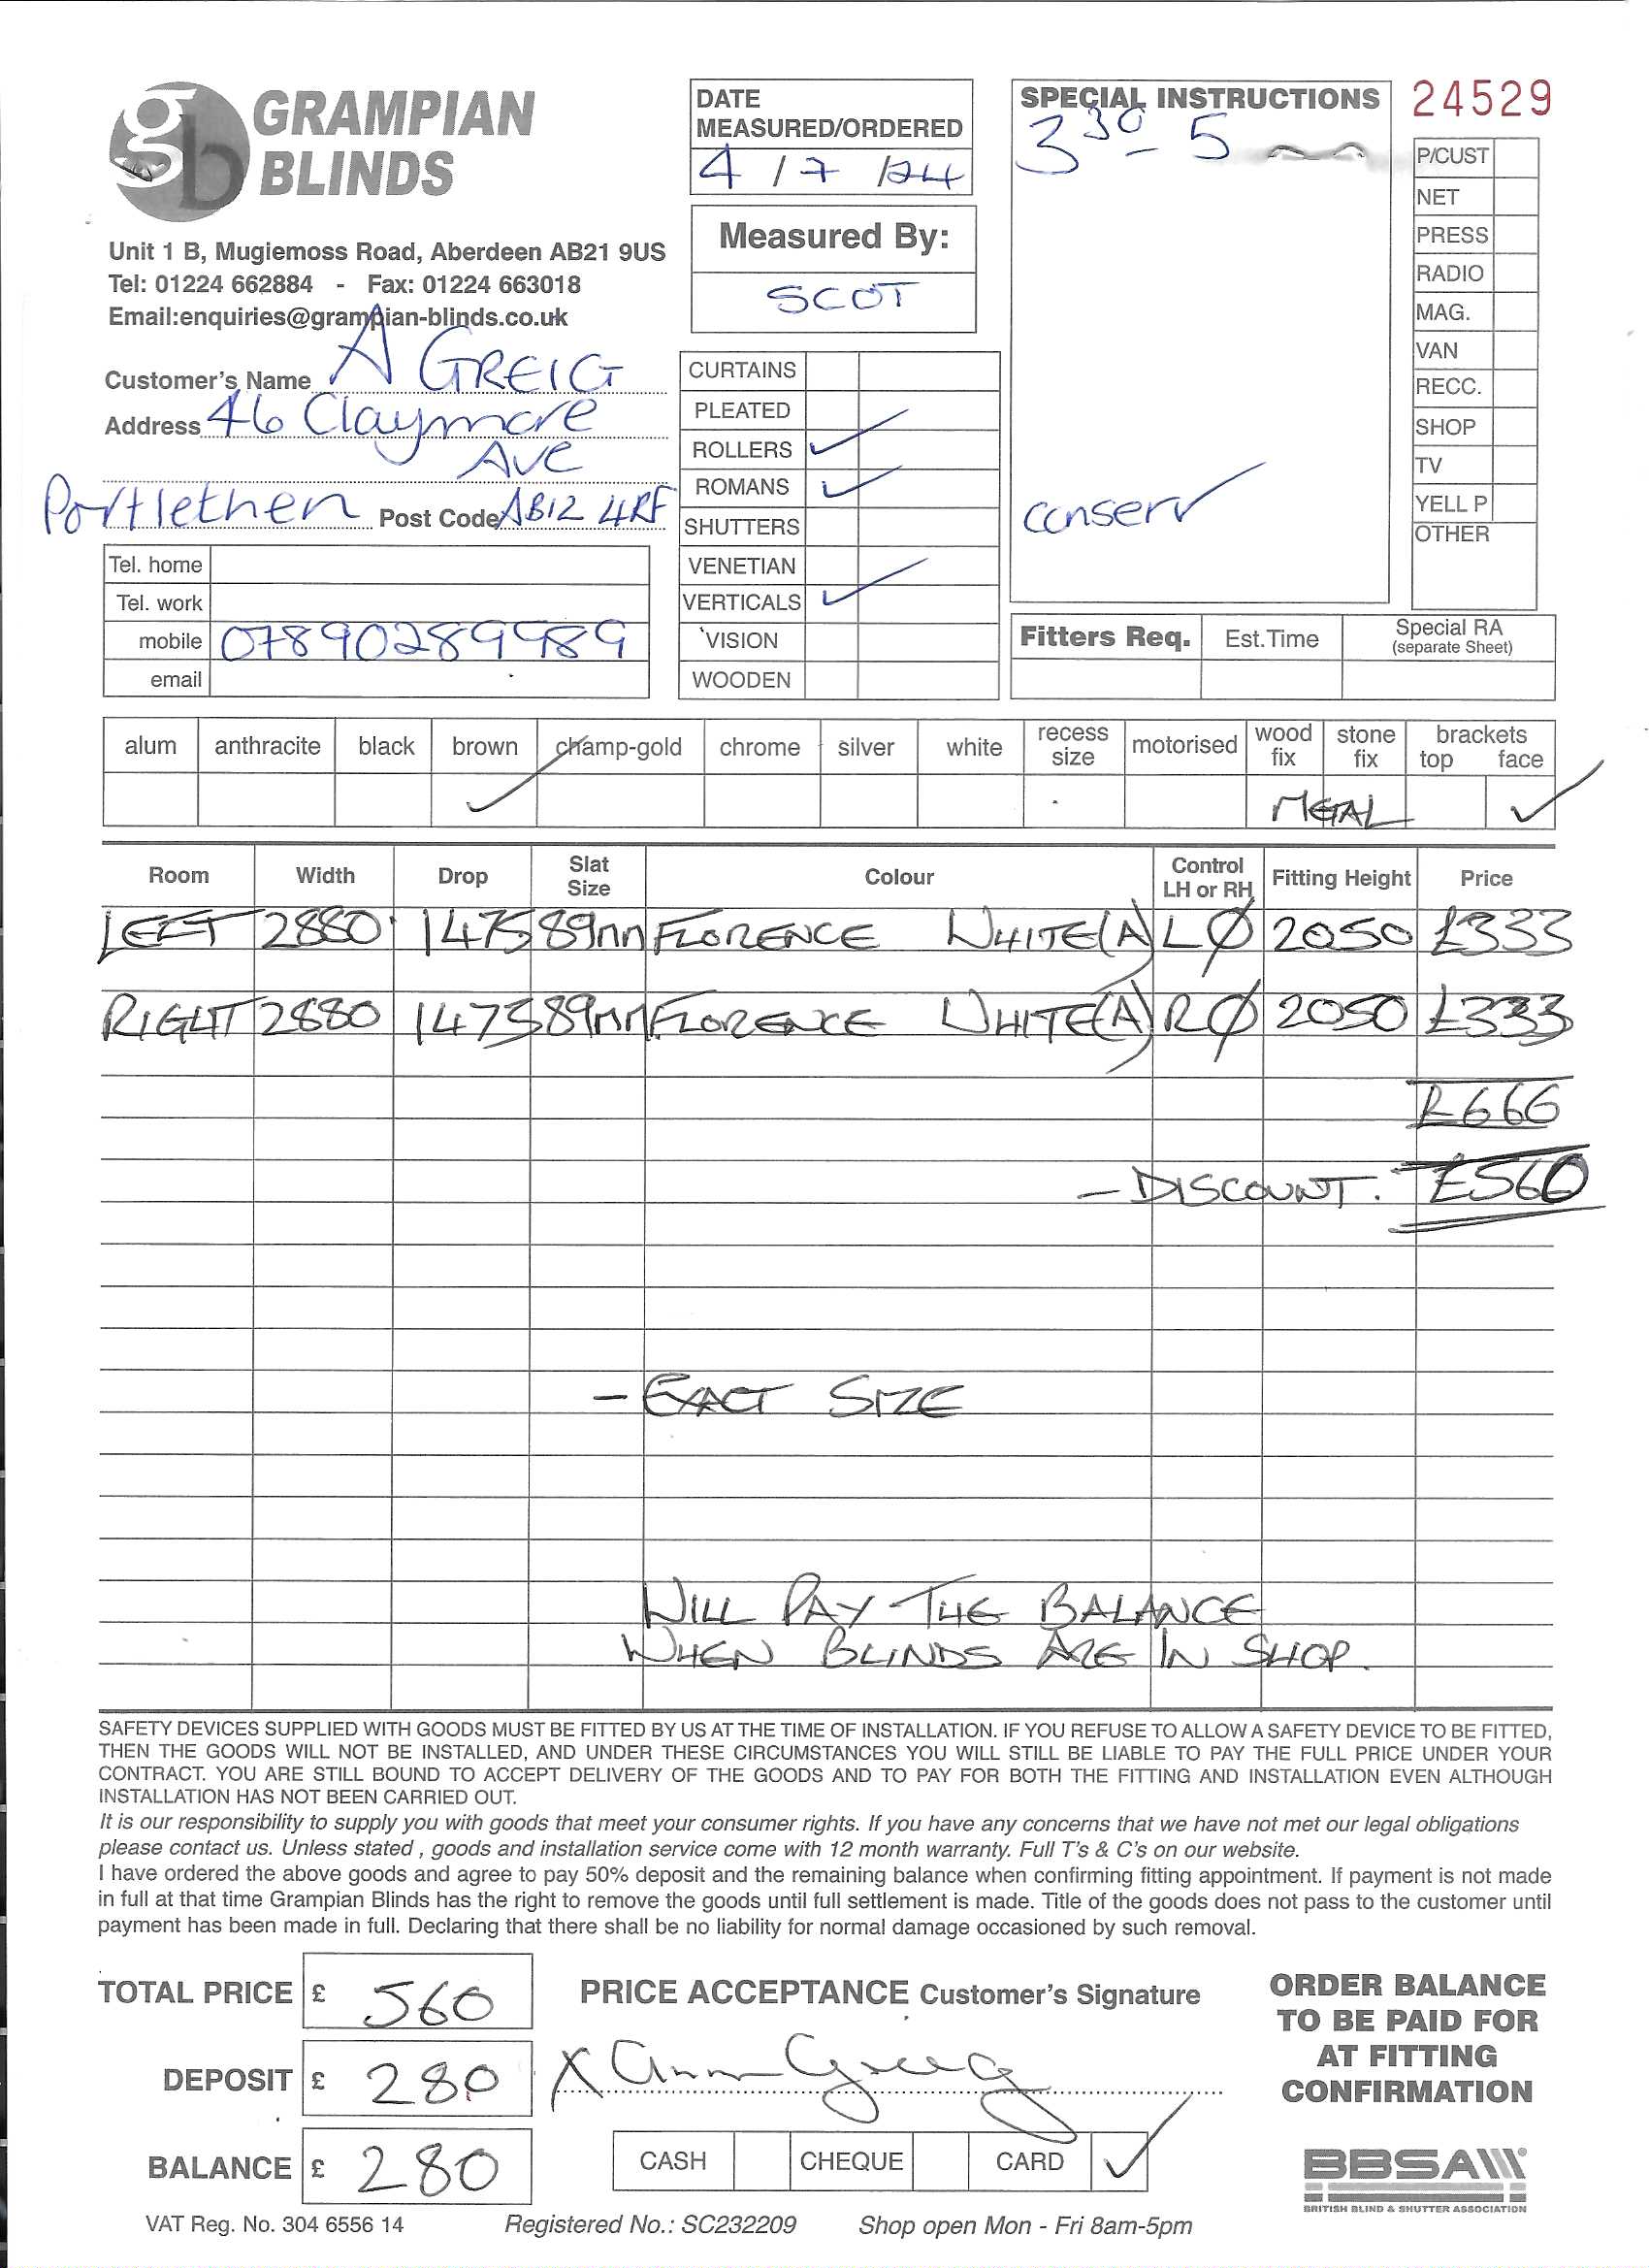 GRAMPIAN
BLINDS
Unit 1 B, Mugiemoss Road, Aberdeen AB21 9US
Tel: 01224 662884 - Fax: 01224 663018
Email:enquiries@grampian-blinds.co.uk
Customer's Name A GREIG
Address 46 Claymore
Ave
Portlethen Post Code AB12 4RF
Tel. home
Tel. work
mobile 07890289989
email
DATE
MEASURED/ORDERED
4 / 7 /24
Measured By:
SCOT
CURTAINS
PLEATED
ROLLERS ✓
ROMANS ✓
SHUTTERS
VENETIAN
VERTICALS ✓
VISION
WOODEN
SPECIAL INSTRUCTIONS
3 30 - 5
conserv
24529
P/CUST
NET
PRESS
RADIO
MAG.
VAN
RECC.
SHOP
TV
YELL P
OTHER
Fitters Req. Est.Time Special RA
(separate Sheet)
alum anthracite black brown champ-gold chrome silver white recess size motorised wood fix stone fix brackets top face
✓ METAL ✓
Room Width Drop Slat Size Colour Control LH or RH Fitting Height Price
LEFT 2880 1475 89mm FLORENCE WHITE(A) L Ø 2050 £333
RIGHT 2880 1475 89mm FLORENCE WHITE(A) R Ø 2050 £333
£666
- DISCOUNT. £560
- EXACT SIZE
WILL PAY THE BALANCE
WHEN BLINDS ARE IN SHOP.
SAFETY DEVICES SUPPLIED WITH GOODS MUST BE FITTED BY US AT THE TIME OF INSTALLATION. IF YOU REFUSE TO ALLOW A SAFETY DEVICE TO BE FITTED,
THEN THE GOODS WILL NOT BE INSTALLED, AND UNDER THESE CIRCUMSTANCES YOU WILL STILL BE LIABLE TO PAY THE FULL PRICE UNDER YOUR
CONTRACT. YOU ARE STILL BOUND TO ACCEPT DELIVERY OF THE GOODS AND TO PAY FOR BOTH THE FITTING AND INSTALLATION EVEN ALTHOUGH
INSTALLATION HAS NOT BEEN CARRIED OUT.
It is our responsibility to supply you with goods that meet your consumer rights. If you have any concerns that we have not met our legal obligations
please contact us. Unless stated , goods and installation service come with 12 month warranty. Full T's & C's on our website.
I have ordered the above goods and agree to pay 50% deposit and the remaining balance when confirming fitting appointment. If payment is not made
in full at that time Grampian Blinds has the right to remove the goods until full settlement is made. Title of the goods does not pass to the customer until
payment has been made in full. Declaring that there shall be no liability for normal damage occasioned by such removal.
TOTAL PRICE £ 560
DEPOSIT £ 280
BALANCE £ 280
PRICE ACCEPTANCE Customer's Signature
X Ann Greig
CASH CHEQUE CARD ✓
ORDER BALANCE
TO BE PAID FOR
AT FITTING
CONFIRMATION
BBSA
BRITISH BLIND & SHUTTER ASSOCIATION
VAT Reg. No. 304 6556 14 Registered No.: SC232209 Shop open Mon - Fri 8am-5pm